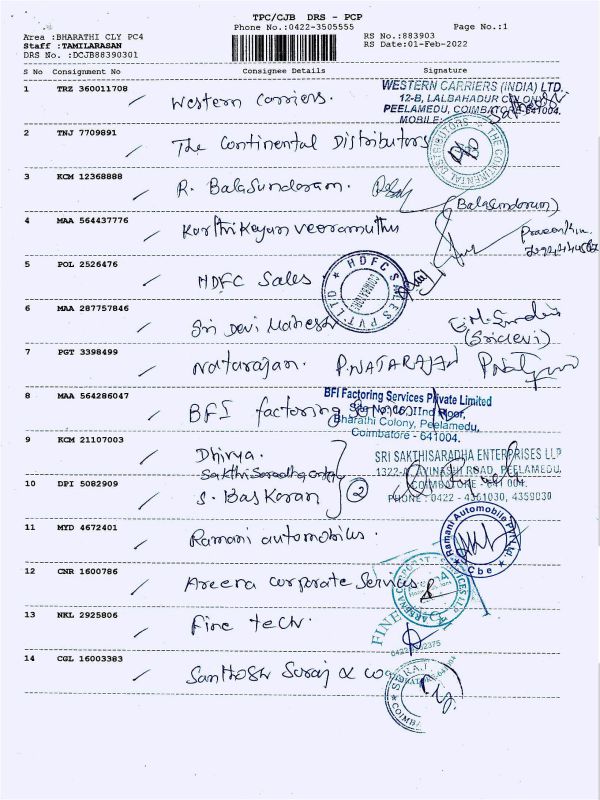 TPC/CJB DRS - PCP
Phone No.:0422-3505555
Page No.:1
Area :BHARATHI CLY PC4
RS No.:883903
Staff :TAMILARASAN
RS Date:01-Feb-2022
DRS No. :DCJB88390301
S No Consignment No Consignee Details Signature
1 TRZ 360011708 Western Carriers.
WESTERN CARRIERS (INDIA) LTD.
12-B, LALBAHADUR COLONY
PEELAMEDU, COIMBATORE-641004.
MOBILE:
2 TNJ 7709891 The Continental Distributors
THE CONTINENTAL DISTRIBUTORS
3 KCM 12368888 R. BalaSundaram.
(Balasundaram)
4 MAA 564437776 Karthikeyan veeramuthu
5 POL 2526476 HDFC Sales
HDFC SALES PVT LTD
6 MAA 287757846 Sri Devi Mahesh
(Sridevi)
7 PGT 3398499 Natarajan. P.NATARAJAN
8 MAA 564286047 BFI factoring
BFI Factoring Services Private Limited
IInd Floor,
Bharathi Colony, Peelamedu,
Coimbatore - 641004.
9 KCM 21107003 Dhivya.
Sakthi Saradha
SRI SAKTHISARADHA ENTERPRISES LLP
1322-A, AVINASHI ROAD, PEELAMEDU,
COIMBATORE - 641 004.
PHONE : 0422 - 4351030, 4359030
10 DPI 5082909 S. Baskaran 2
11 MYD 4672401 Ramani automobiles.
Ramani Automobile Pvt Ltd.
Cbe
12 CNR 1600786 Areena corporate Services
13 NKL 2925806 Fine tech.
FINE
14 CGL 16003383 Santhosh Suraj & co
SURAJ
COIMBA